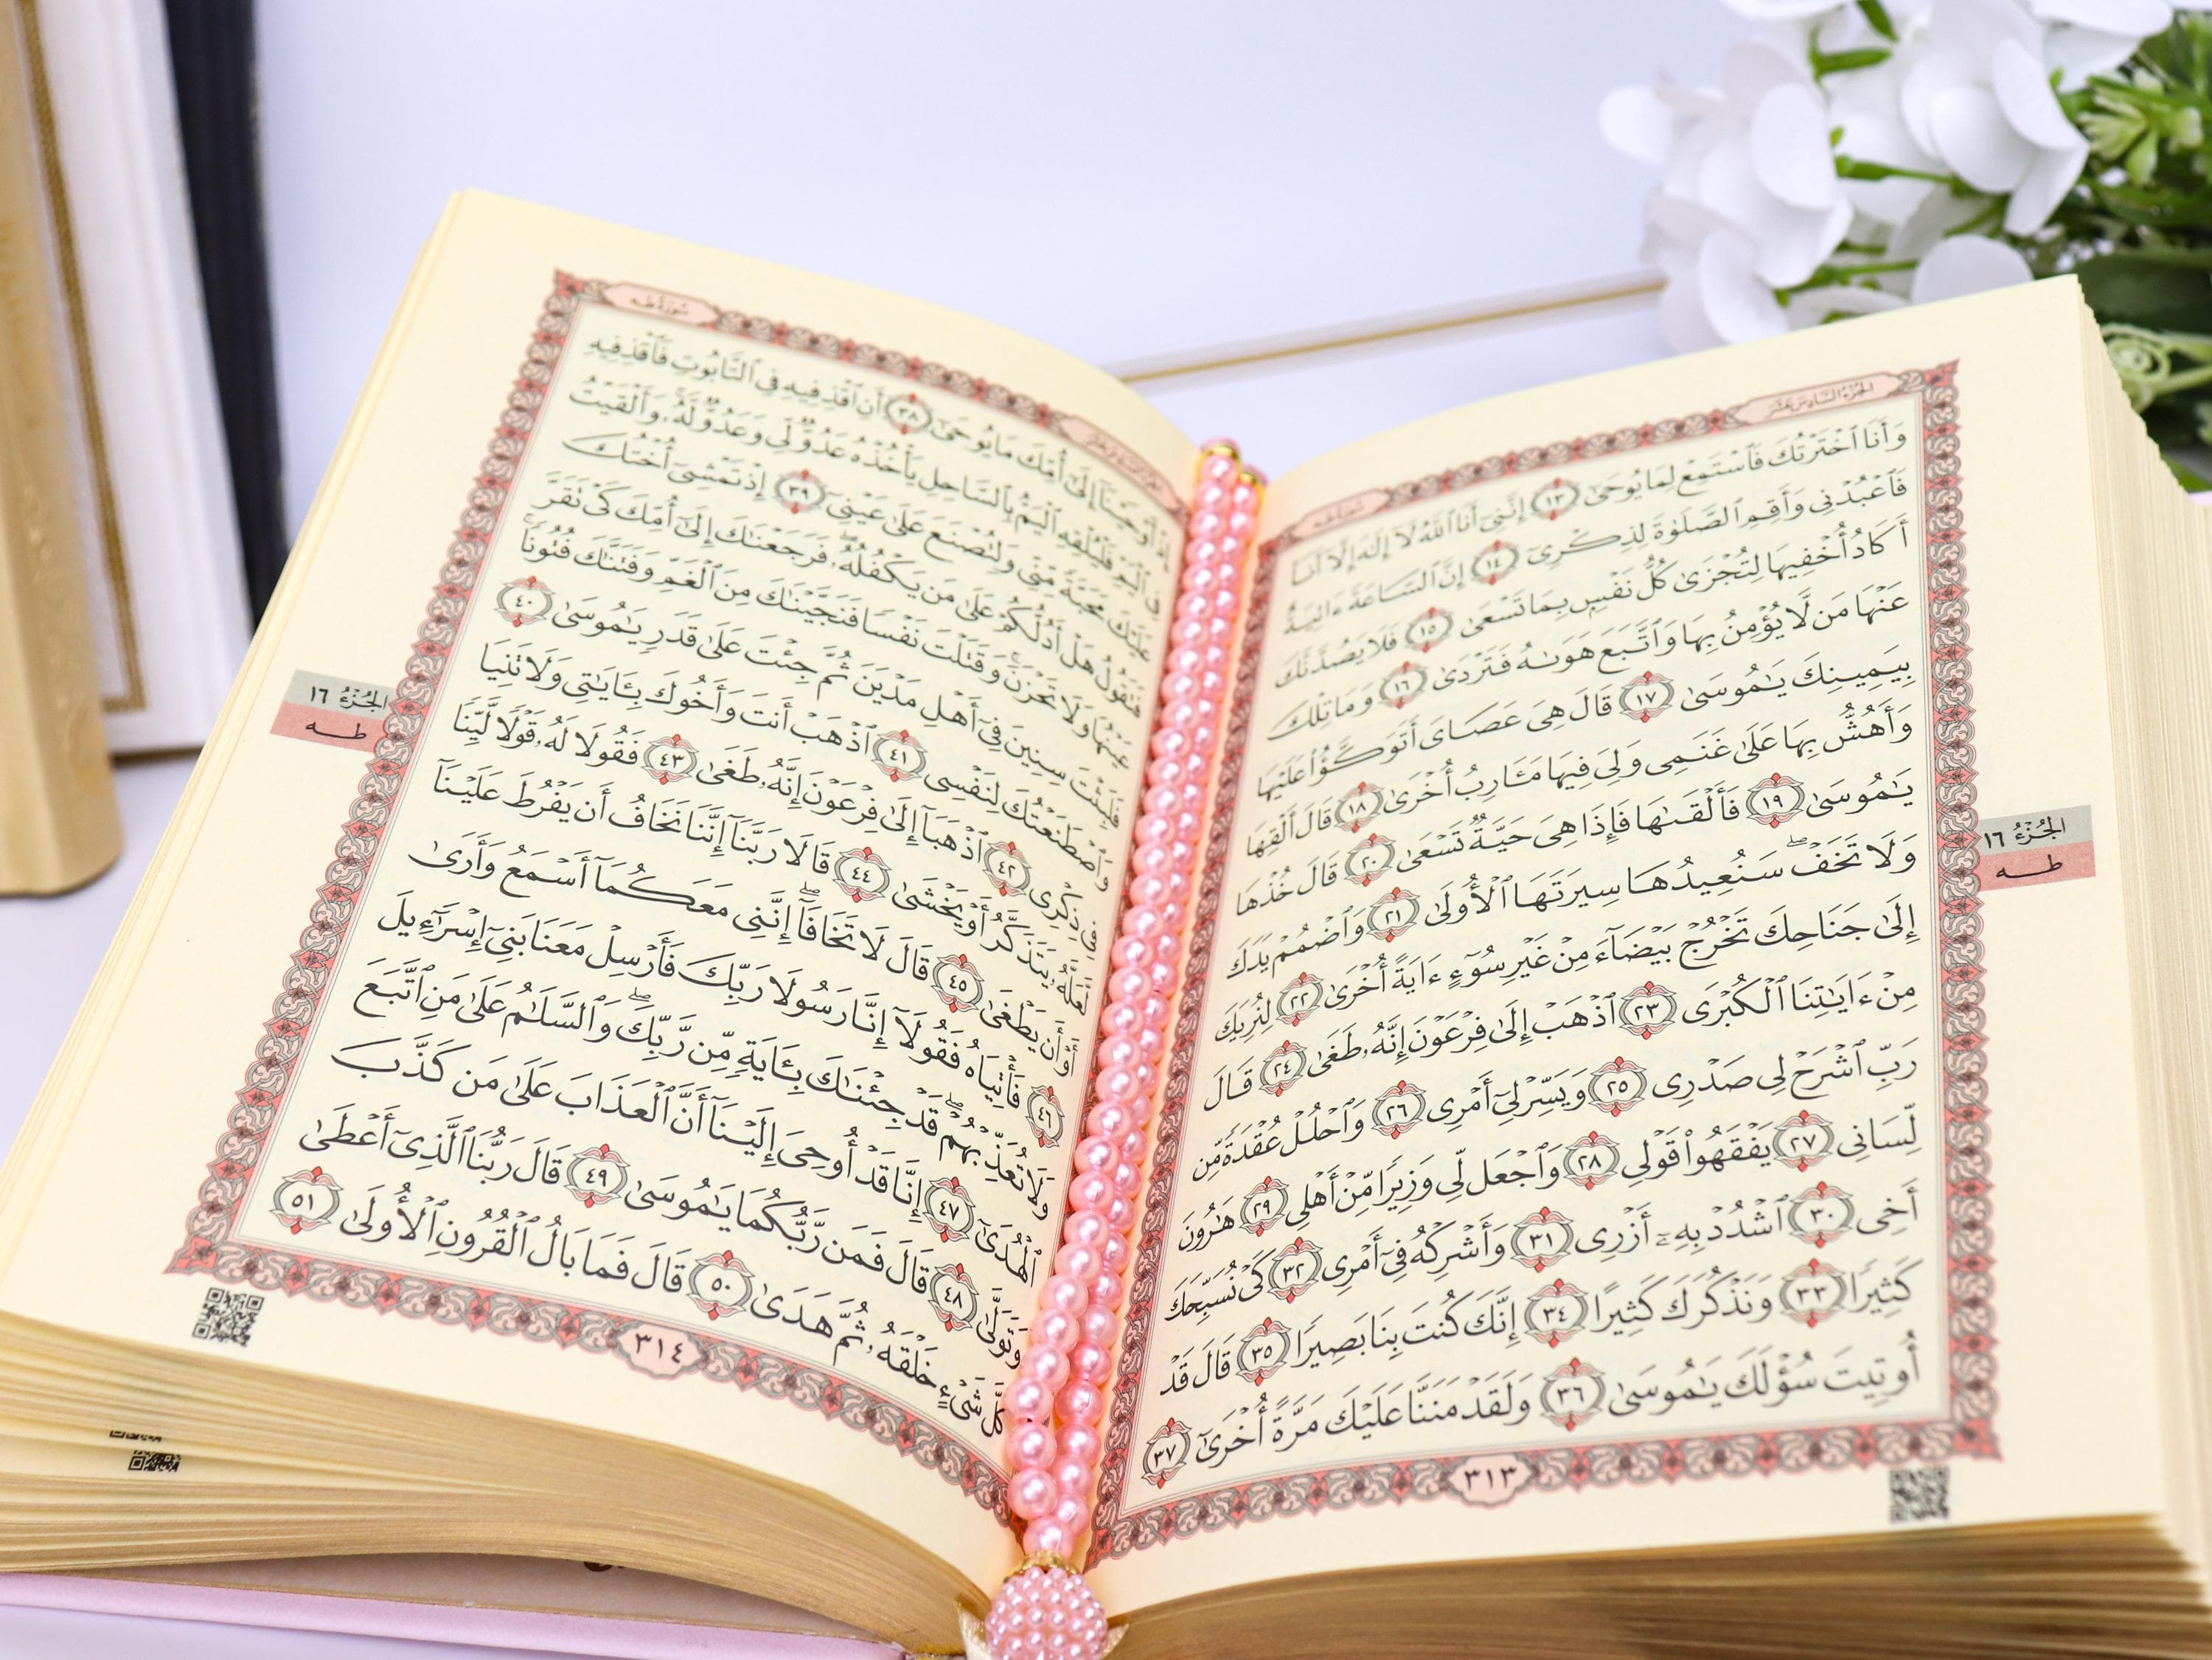 الجزء السادس عشر
سورة طه
وَأَنَا ٱخْتَرْتُكَ فَٱسْتَمِعْ لِمَا يُوحَىٰٓ ١٣ إِنَّنِىٓ أَنَا ٱللَّهُ لَآ إِلَٰهَ إِلَّآ أَنَا۠
فَٱعْبُدْنِى وَأَقِمِ ٱلصَّلَوٰةَ لِذِكْرِىٓ ١٤ إِنَّ ٱلسَّاعَةَ ءَاتِيَةٌ
أَكَادُ أُخْفِيهَا لِتُجْزَىٰ كُلُّ نَفْسٍۭ بِمَا تَسْعَىٰ ١٥ فَلَا يَصُدَّنَّكَ
عَنْهَا مَن لَّا يُؤْمِنُ بِهَا وَٱتَّبَعَ هَوَىٰهُ فَتَرْدَىٰ ١٦ وَمَا تِلْكَ
بِيَمِينِكَ يَٰمُوسَىٰ ١٧ قَالَ هِىَ عَصَاىَ أَتَوَكَّؤُا۟ عَلَيْهَا
وَأَهُشُّ بِهَا عَلَىٰ غَنَمِى وَلِىَ فِيهَا مَـَٔارِبُ أُخْرَىٰ ١٨ قَالَ أَلْقِهَا
يَٰمُوسَىٰ ١٩ فَأَلْقَىٰهَا فَإِذَا هِىَ حَيَّةٌ تَسْعَىٰ ٢٠ قَالَ خُذْهَا
وَلَا تَخَفْ ۖ سَنُعِيدُهَا سِيرَتَهَا ٱلْأُولَىٰ ٢١ وَٱضْمُمْ يَدَكَ
إِلَىٰ جَنَاحِكَ تَخْرُجْ بَيْضَآءَ مِنْ غَيْرِ سُوٓءٍ ءَايَةً أُخْرَىٰ ٢٢ لِنُرِيَكَ
مِنْ ءَايَٰتِنَا ٱلْكُبْرَى ٢٣ ٱذْهَبْ إِلَىٰ فِرْعَوْنَ إِنَّهُۥ طَغَىٰ ٢٤ قَالَ
رَبِّ ٱشْرَحْ لِى صَدْرِى ٢٥ وَيَسِّرْ لِىٓ أَمْرِى ٢٦ وَٱحْلُلْ عُقْدَةً مِّن
لِّسَانِى ٢٧ يَفْقَهُوا۟ قَوْلِى ٢٨ وَٱجْعَل لِّى وَزِيرًا مِّنْ أَهْلِى ٢٩ هَٰرُونَ
أَخِى ٣٠ ٱشْدُدْ بِهِۦٓ أَزْرِى ٣١ وَأَشْرِكْهُ فِىٓ أَمْرِى ٣٢ كَىْ نُسَبِّحَكَ
كَثِيرًا ٣٣ وَنَذْكُرَكَ كَثِيرًا ٣٤ إِنَّكَ كُنتَ بِنَا بَصِيرًا ٣٥ قَالَ قَدْ
أُوتِيتَ سُؤْلَكَ يَٰمُوسَىٰ ٣٦ وَلَقَدْ مَنَنَّا عَلَيْكَ مَرَّةً أُخْرَىٰٓ ٣٧
٣١٣
الجزء ١٦
طه
سورة طه
إِذْ أَوْحَيْنَآ إِلَىٰٓ أُمِّكَ مَا يُوحَىٰٓ ٣٨ أَنِ ٱقْذِفِيهِ فِى ٱلتَّابُوتِ فَٱقْذِفِيهِ
فِى ٱلْيَمِّ فَلْيُلْقِهِ ٱلْيَمُّ بِٱلسَّاحِلِ يَأْخُذْهُ عَدُوٌّ لِّى وَعَدُوٌّ لَّهُۥ ۚ وَأَلْقَيْتُ
عَلَيْكَ مَحَبَّةً مِّنِّى وَلِتُصْنَعَ عَلَىٰ عَيْنِىٓ ٣٩ إِذْ تَمْشِىٓ أُخْتُكَ
فَتَقُولُ هَلْ أَدُلُّكُمْ عَلَىٰ مَن يَكْفُلُهُۥ ۖ فَرَجَعْنَٰكَ إِلَىٰٓ أُمِّكَ كَىْ تَقَرَّ
عَيْنُهَا وَلَا تَحْزَنَ ۚ وَقَتَلْتَ نَفْسًا فَنَجَّيْنَٰكَ مِنَ ٱلْغَمِّ وَفَتَنَّٰكَ فُتُونًا ۚ
فَلَبِثْتَ سِنِينَ فِىٓ أَهْلِ مَدْيَنَ ثُمَّ جِئْتَ عَلَىٰ قَدَرٍ يَٰمُوسَىٰ ٤٠
وَٱصْطَنَعْتُكَ لِنَفْسِى ٤١ ٱذْهَبْ أَنتَ وَأَخُوكَ بِـَٔايَٰتِى وَلَا تَنِيَا
فِى ذِكْرِى ٤٢ ٱذْهَبَآ إِلَىٰ فِرْعَوْنَ إِنَّهُۥ طَغَىٰ ٤٣ فَقُولَا لَهُۥ قَوْلًا لَّيِّنًا
لَّعَلَّهُۥ يَتَذَكَّرُ أَوْ يَخْشَىٰ ٤٤ قَالَا رَبَّنَآ إِنَّنَا نَخَافُ أَن يَفْرُطَ عَلَيْنَآ
أَوْ أَن يَطْغَىٰ ٤٥ قَالَ لَا تَخَافَآ ۖ إِنَّنِى مَعَكُمَآ أَسْمَعُ وَأَرَىٰ
٤٦ فَأْتِيَاهُ فَقُولَآ إِنَّا رَسُولَا رَبِّكَ فَأَرْسِلْ مَعَنَا بَنِىٓ إِسْرَٰٓءِيلَ
وَلَا تُعَذِّبْهُمْ ۖ قَدْ جِئْنَٰكَ بِـَٔايَةٍ مِّن رَّبِّكَ ۖ وَٱلسَّلَٰمُ عَلَىٰ مَنِ ٱتَّبَعَ
ٱلْهُدَىٰٓ ٤٧ إِنَّا قَدْ أُوحِىَ إِلَيْنَآ أَنَّ ٱلْعَذَابَ عَلَىٰ مَن كَذَّبَ
وَتَوَلَّىٰ ٤٨ قَالَ فَمَن رَّبُّكُمَا يَٰمُوسَىٰ ٤٩ قَالَ رَبُّنَا ٱلَّذِىٓ أَعْطَىٰ
كُلَّ شَىْءٍ خَلْقَهُۥ ثُمَّ هَدَىٰ ٥٠ قَالَ فَمَا بَالُ ٱلْقُرُونِ ٱلْأُولَىٰ ٥١
٣١٤
الجزء ١٦
طه